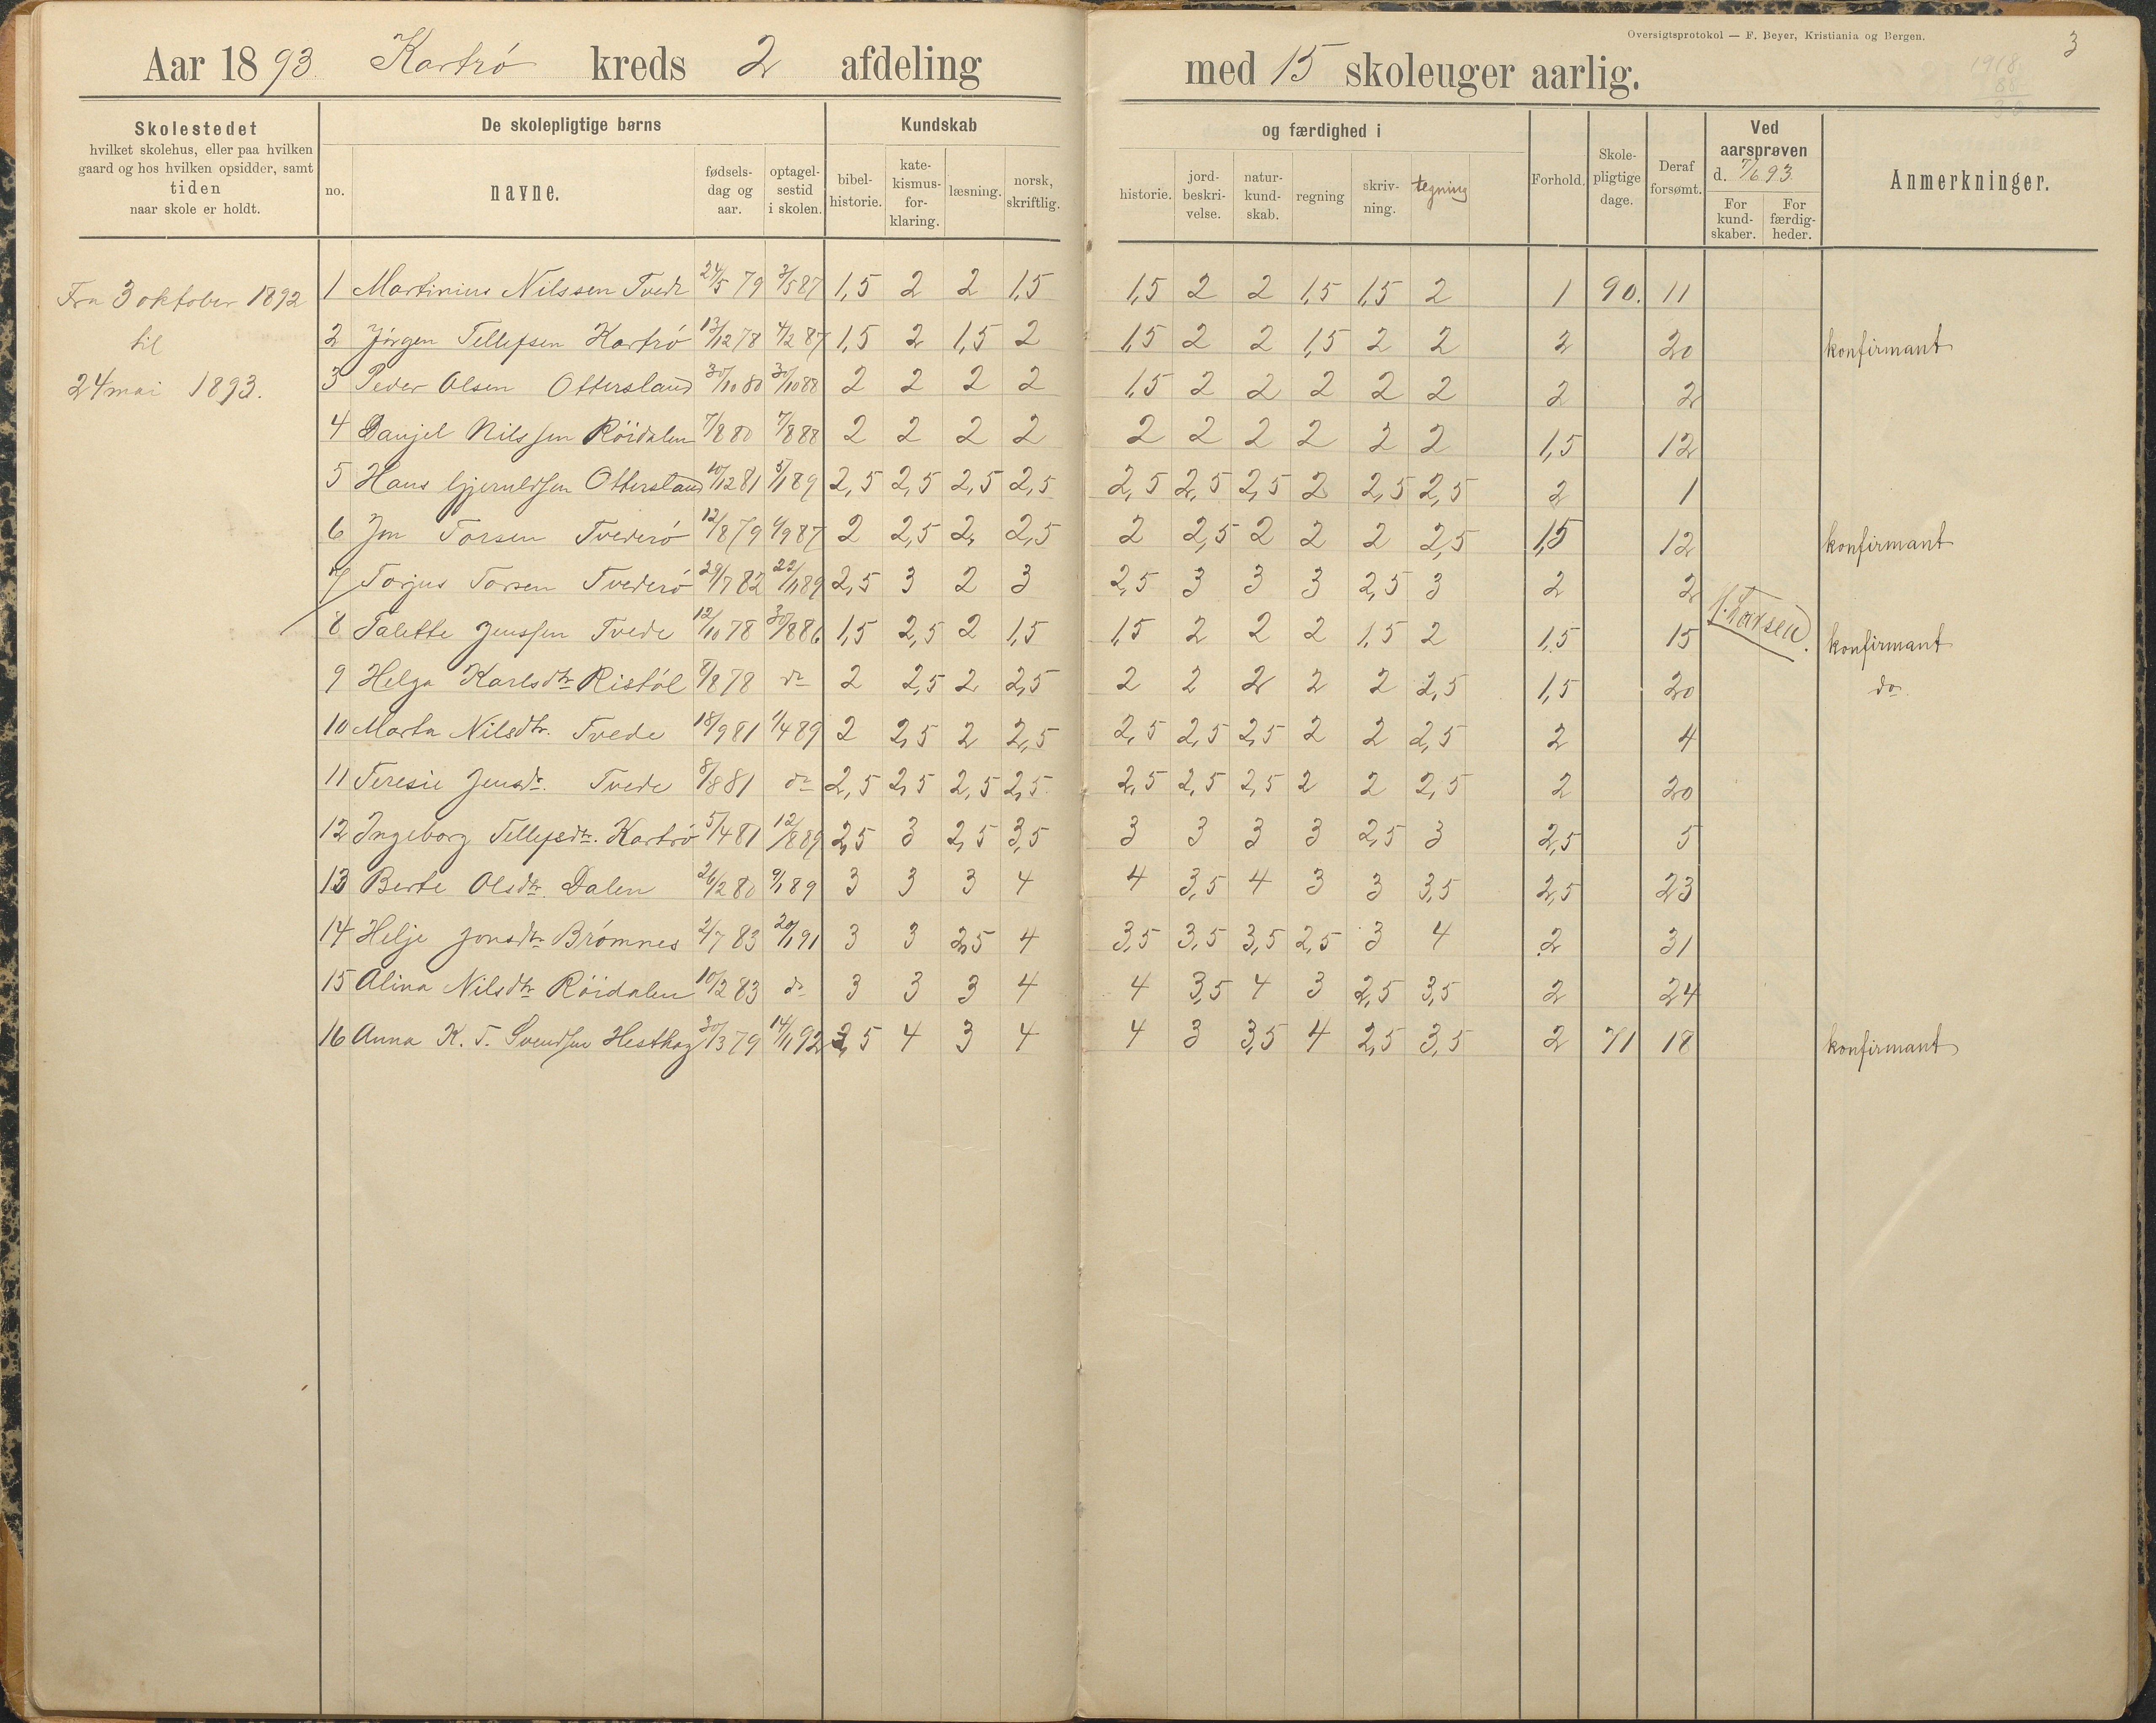 Oversigtsprotokol — F. Beyer, Kristiania og Bergen.
3
1918
88
30
Aar 1893 Kartrø kreds 2 afdeling med 15 skoleuger aarlig.
Skolestedet
hvilket skolehus, eller paa hvilken
gaard og hos hvilken opsidder, samt
tiden
naar skole er holdt.
De skolepligtige børns
no.
navne.
fødsels-
dag og
aar.
optagel-
sestid
i skolen.
Kundskab
bibel-
historie.
kate-
kismus-
for-
klaring.
læsning.
norsk,
skriftlig.
og færdighed i
historie.
jord-
beskri-
velse.
natur-
kund-
skab.
regning
skriv-
ning.
tegning
Forhold.
Skole-
pligtige
dage.
Deraf
forsømt.
Ved
aarsprøven
d. 7/6 93.
For
kund-
skaber.
For
færdig-
heder.
Anmerkninger.
Fra 3 oktober 1892
til
24 mai 1893.
1 Martinius Nilssen Tvede 24/5 79 3/5 87 1,5 2 2 1,5 1,5 2 2 1,5 1,5 2 1 90. 11
2 Jørgen Tellefsen Kartrø 13/12 78 4/2 87 1,5 2 1,5 2 1,5 2 2 1,5 2 2 2 20 konfirmant
3 Peder Olsen Ottersland 30/10 80 30/10 88 2 2 2 2 1,5 2 2 2 2 2 2 2
4 Danjel Nilssen Röidalen 7/8 80 7/8 88 2 2 2 2 2 2 2 2 2 2 1,5 12
5 Hans Gjeruldsen Ottersland 10/12 81 5/1 89 2,5 2,5 2,5 2,5 2,5 2,5 2,5 2 2,5 2,5 2 1
6 Jon Torsen Tvederø 12/8 79 1/9 87 2 2,5 2 2,5 2 2,5 2 2 2 2,5 1,5 12 konfirmant
7 Torjus Torsen Tvederø 29/7 82 22/11 89 2,5 3 2 3 2,5 3 3 3 2,5 3 2 2
8 Talette Jenssen Tvede 12/10 78 30/8 86 1,5 2,5 2 1,5 1,5 2 2 2 1,5 2 1,5 15 konfirmant
9 Helga Karlsdtr Ristøl 8/8 78 do 2 2,5 2 2,5 2 2 2 2 2 2,5 1,5 20 do.
10 Marta Nilsdtr. Tvede 18/9 81 1/4 89 2 2,5 2 2,5 2,5 2,5 2,5 2 2 2,5 2 4
11 Teresie Jensdr. Tvede 8/8 81 do 2,5 2,5 2,5 2,5 2,5 2,5 2,5 2 2 2,5 2 20
12 Ingeborg Tellefsdtr. Kartrø 5/4 81 12/8 89 2,5 3 2,5 3,5 3 3 3 3 2,5 3 2,5 5
13 Berte Olsdtr. Dalen 26/2 80 9/1 89 3 3 3 4 4 3,5 4 3 3 3,5 2,5 23
14 Helje Jonsdtr Brømnes 2/7 83 20/1 91 3 3 2,5 4 3,5 3,5 3,5 2,5 3 4 2 31
15 Alina Nilsdtr Röidalen 10/2 83 do 3 3 3 4 4 3,5 4 3 2,5 3,5 2 24
16 Anna K. T. Svendsen Hesthag 30/3 79 14/1 92 3,5 4 3 4 4 3 3,5 4 2,5 3,5 2 71 18 konfirmant